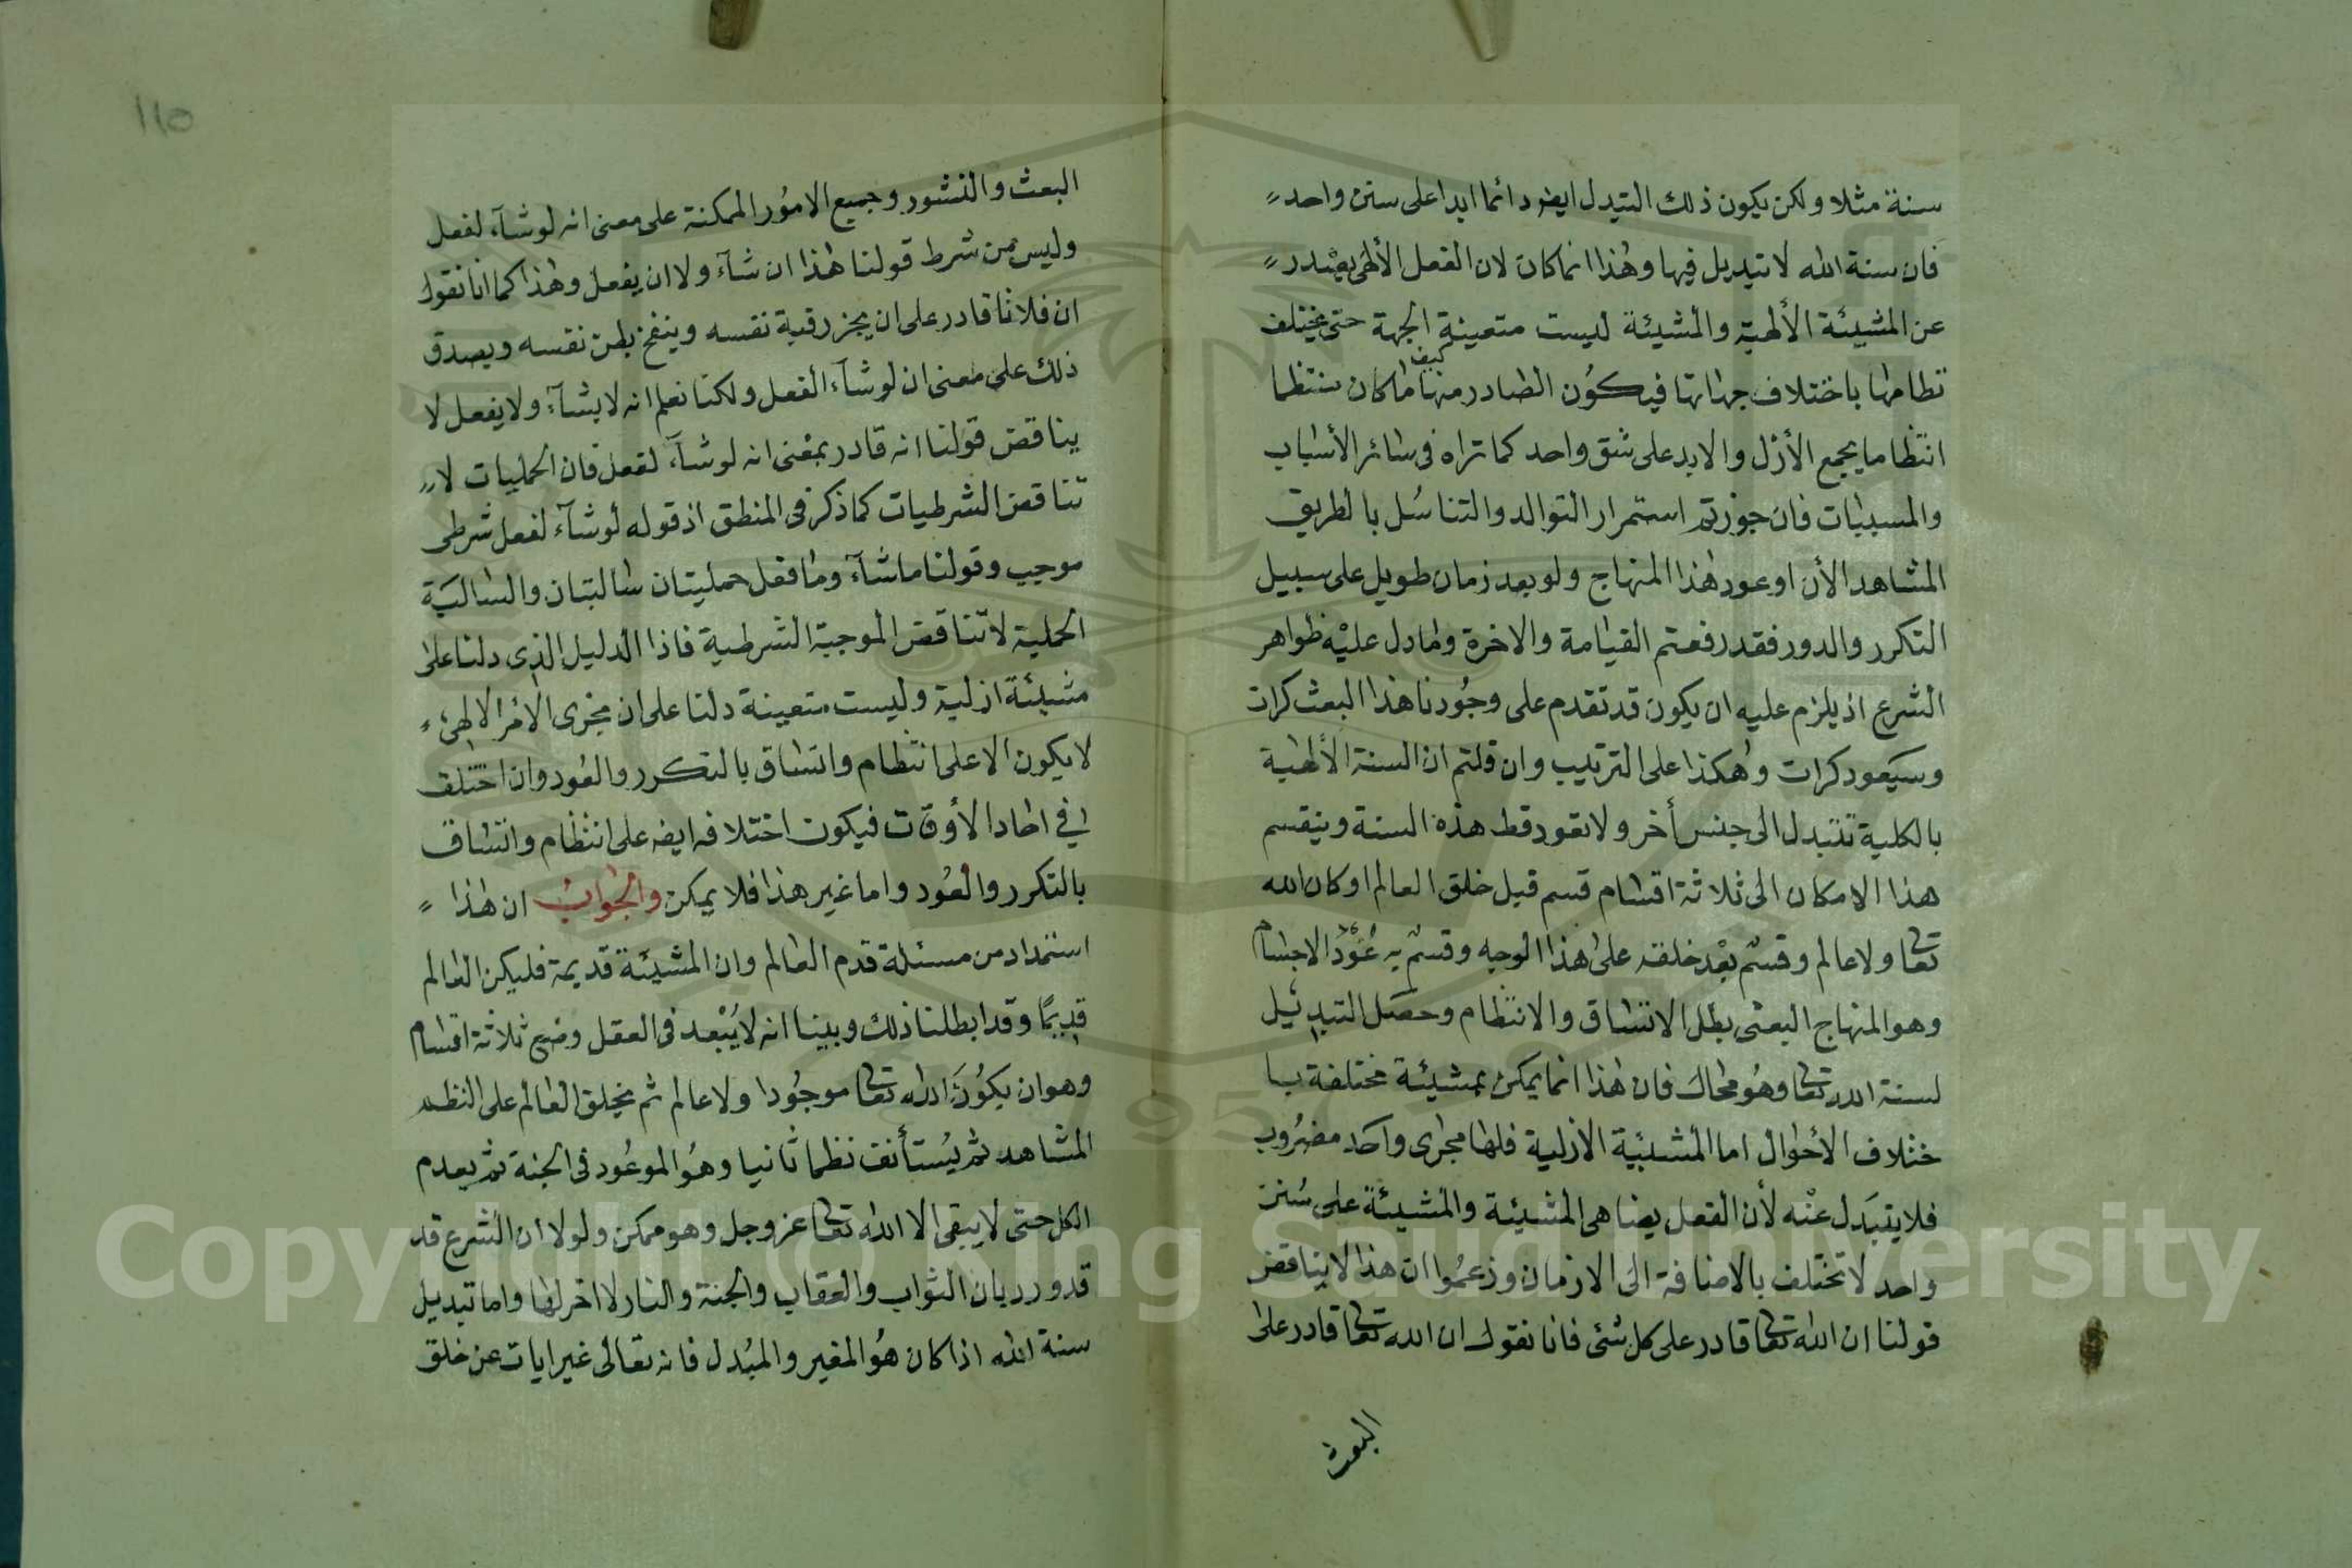 سنة مثلا ولكن يكون ذلك التبدل ايضا دائما ابدا على سنن واحد
فان سنة الله لا تبديل فيها وهذا انما كان لان الفعل الألهي يصدر
عن المشيئة الألهية والمشيئة ليست متعينة الجهة حتى يختلف
نظامها باختلاف جهاتها فيكون الصادر منها كيف ما كان منتظما
انتظاما يجمع الأزل والابد على شق واحد كما تراه فى سائر الأسباب
والمسببات فان جوزتم استمرار التوالد والتناسل بالطريق
المشاهد الأن او عود هذا المنهاج ولو بعد زمان طويل على سبيل
التكرر والدور فقد رفعتم القيامة والاخرة وما دل عليه ظواهر
الشرع اذ يلزم عليه ان يكون قد تقدم على وجودنا هذا البعث كرات
وسيعود كرات وهكذا على الترتيب وان قلتم ان السنة الألهية
بالكلية تتبدل الى جنس أخر ولا تعود قط هذه السنة وينقسم
هذا الامكان الى ثلاثة اقسام قسم قبل خلق العالم او كان الله
تعا ولا عالم وقسم بعد خلقه على هذا الوجه وقسم به عود الاجسام
وهو المنهاج البعثى بطل الاتساق والانتظام وحصل التبديل
لسنة الله تعا وهو محال فان هذا انما يمكن بمشيئة مختلفة با
ختلاف الأحوال اما المشيئة الازلية فلها مجرى واحد مضروب
فلا يتبدل عنه لأن الفعل يضاهى المشيئة والمشيئة على سنن
واحد لا تختلف بالاضافة الى الازمان وزعموا ان هذا لا يناقض
قولنا ان الله تعا قادر على كل شئ فانا نقول ان الله تعا قادر على
البعث
١١٥
البعث والنشور وجميع الامور الممكنة على معنى انه لو شآء لفعل
وليس من شرط قولنا هذا ان شآء ولا ان يفعل وهذا كما انا نقول
ان فلانا قادر على ان يجز رقبة نفسه وينفخ بطن نفسه ويصدق
ذلك على معنى ان لو شآء الفعل ولكنا نعلم انه لا يشآء ولا يفعل لا
يناقض قولنا انه قادر بمعنى انه لو شآء لفعل فان الحمليات لا
تناقض الشرطيات كما ذكر فى المنطق اذ قوله لو شآء لفعل شرطى
موجب وقولنا ما شآء وما فعل حمليتان سالبتان والسالبة
الحملية لا تناقض الموجبة الشرطية فاذا الدليل الذى دلنا على
مشيئة ازلية وليست متعينة دلنا على ان مجرى الامر الالهى
لا يكون الا على انتظام واتساق بالتكرر والعود وان اختلف
في احاد الأوقات فيكون اختلافه ايضا على انتظام واتساق
بالتكرر والعود واما غير هذا فلا يمكن والجواب ان هذا
استمداد من مسئلة قدم العالم وان المشيئة قديمة فليكن العالم
قديمًا وقد ابطلنا ذلك وبينا انه لا يبعد فى العقل وضع ثلاثة اقسام
وهو ان يكون الله تعا موجودا ولا عالم ثم يخلق العالم على النظم
المشاهد ثم يستأنف نظما ثانيا وهو الموعود فى الجنة ثم يعدم
الكل حتى لا يبقى الا الله تعا عز وجل وهو ممكن ولولا ان الشرع قد
قد ورد بان الثواب والعقاب والجنة والنار لا اخر لها واما تبديل
سنة الله اذا كان هو المغير والمبدل فانه تعالى غير ايات عن خلق
Copyright © King Saud University
1957